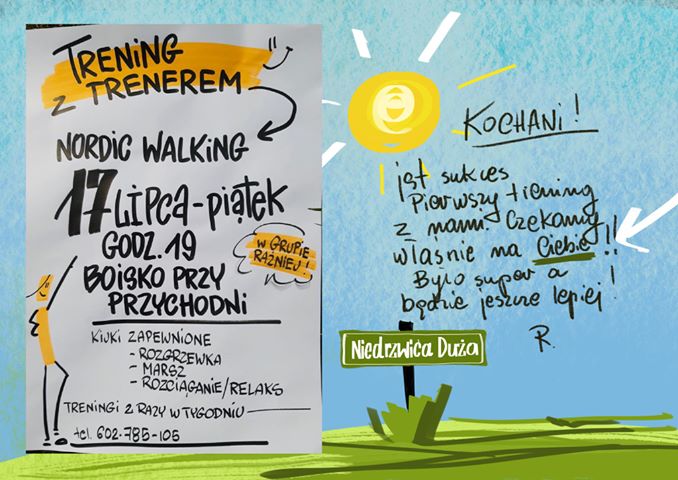 TRENING
Z TRENEREM
NORDIC WALKING
17 LIPCA-PIĄTEK
GODZ. 19
W GRUPIE
RAŹNIEJ!
BOISKO PRZY
PRZYCHODNI
KIJKI ZAPEWNIONE
- ROZGRZEWKA
- MARSZ
- ROZCIĄGANIE/RELAKS
TRENINGI 2 RAZY W TYGODNIU
tel. 602-785-105
KOCHANI!
jest sukces
Pierwszy trening
z nami. Czekamy
właśnie na Ciebie!!
Było super a
będzie jeszcze lepiej!
R.
Niedrzwica Duża